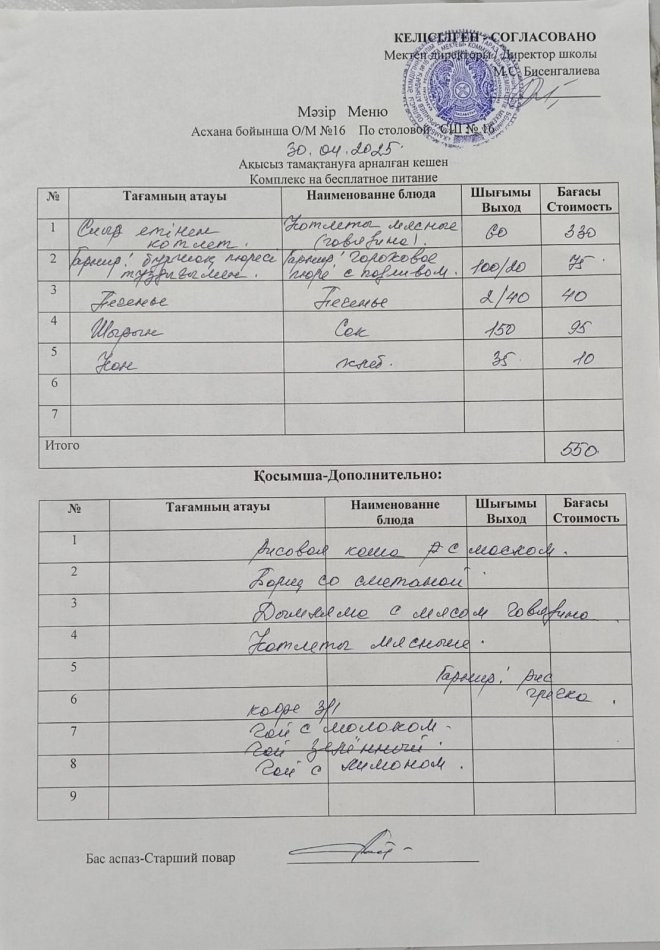 КЕЛІСІЛГЕН - СОГЛАСОВАНО
Мектеп директоры / Директор школы
М.С. Бисенгалиева
Мәзір Меню
Асхана бойынша О/М №16 По столовой СШ № 16
30.04.2025.
Ақысыз тамақтануға арналған кешен
Комплекс на бесплатное питание
№ Тағамның атауы Наименование блюда Шығымы Выход Бағасы Стоимость
1 Сиыр етінен котлет. Котлеты мясные (говядина). 60 330
2 Гарнир: бұршақ пюресі Гарнир: гороховое пюре с подливом. 100/20 75
3 Печенье Печенье 2/40 40
4 Шырын Сок 150 95
5 Нан хлеб. 35 10
6
7
Итого 550
Қосымша-Дополнительно:
№ Тағамның атауы Наименование блюда Шығымы Выход Бағасы Стоимость
1 Рисовая каша с маслом.
2 Борщ со сметаной
3 Дымляма с мясом говядина
4 Котлеты мясные.
5 Гарнир: рис
гречка.
6 кофе 3/1
7 Чай с молоком
Чай зелённый.
8 Чай с лимоном.
9
Бас аспаз-Старший повар